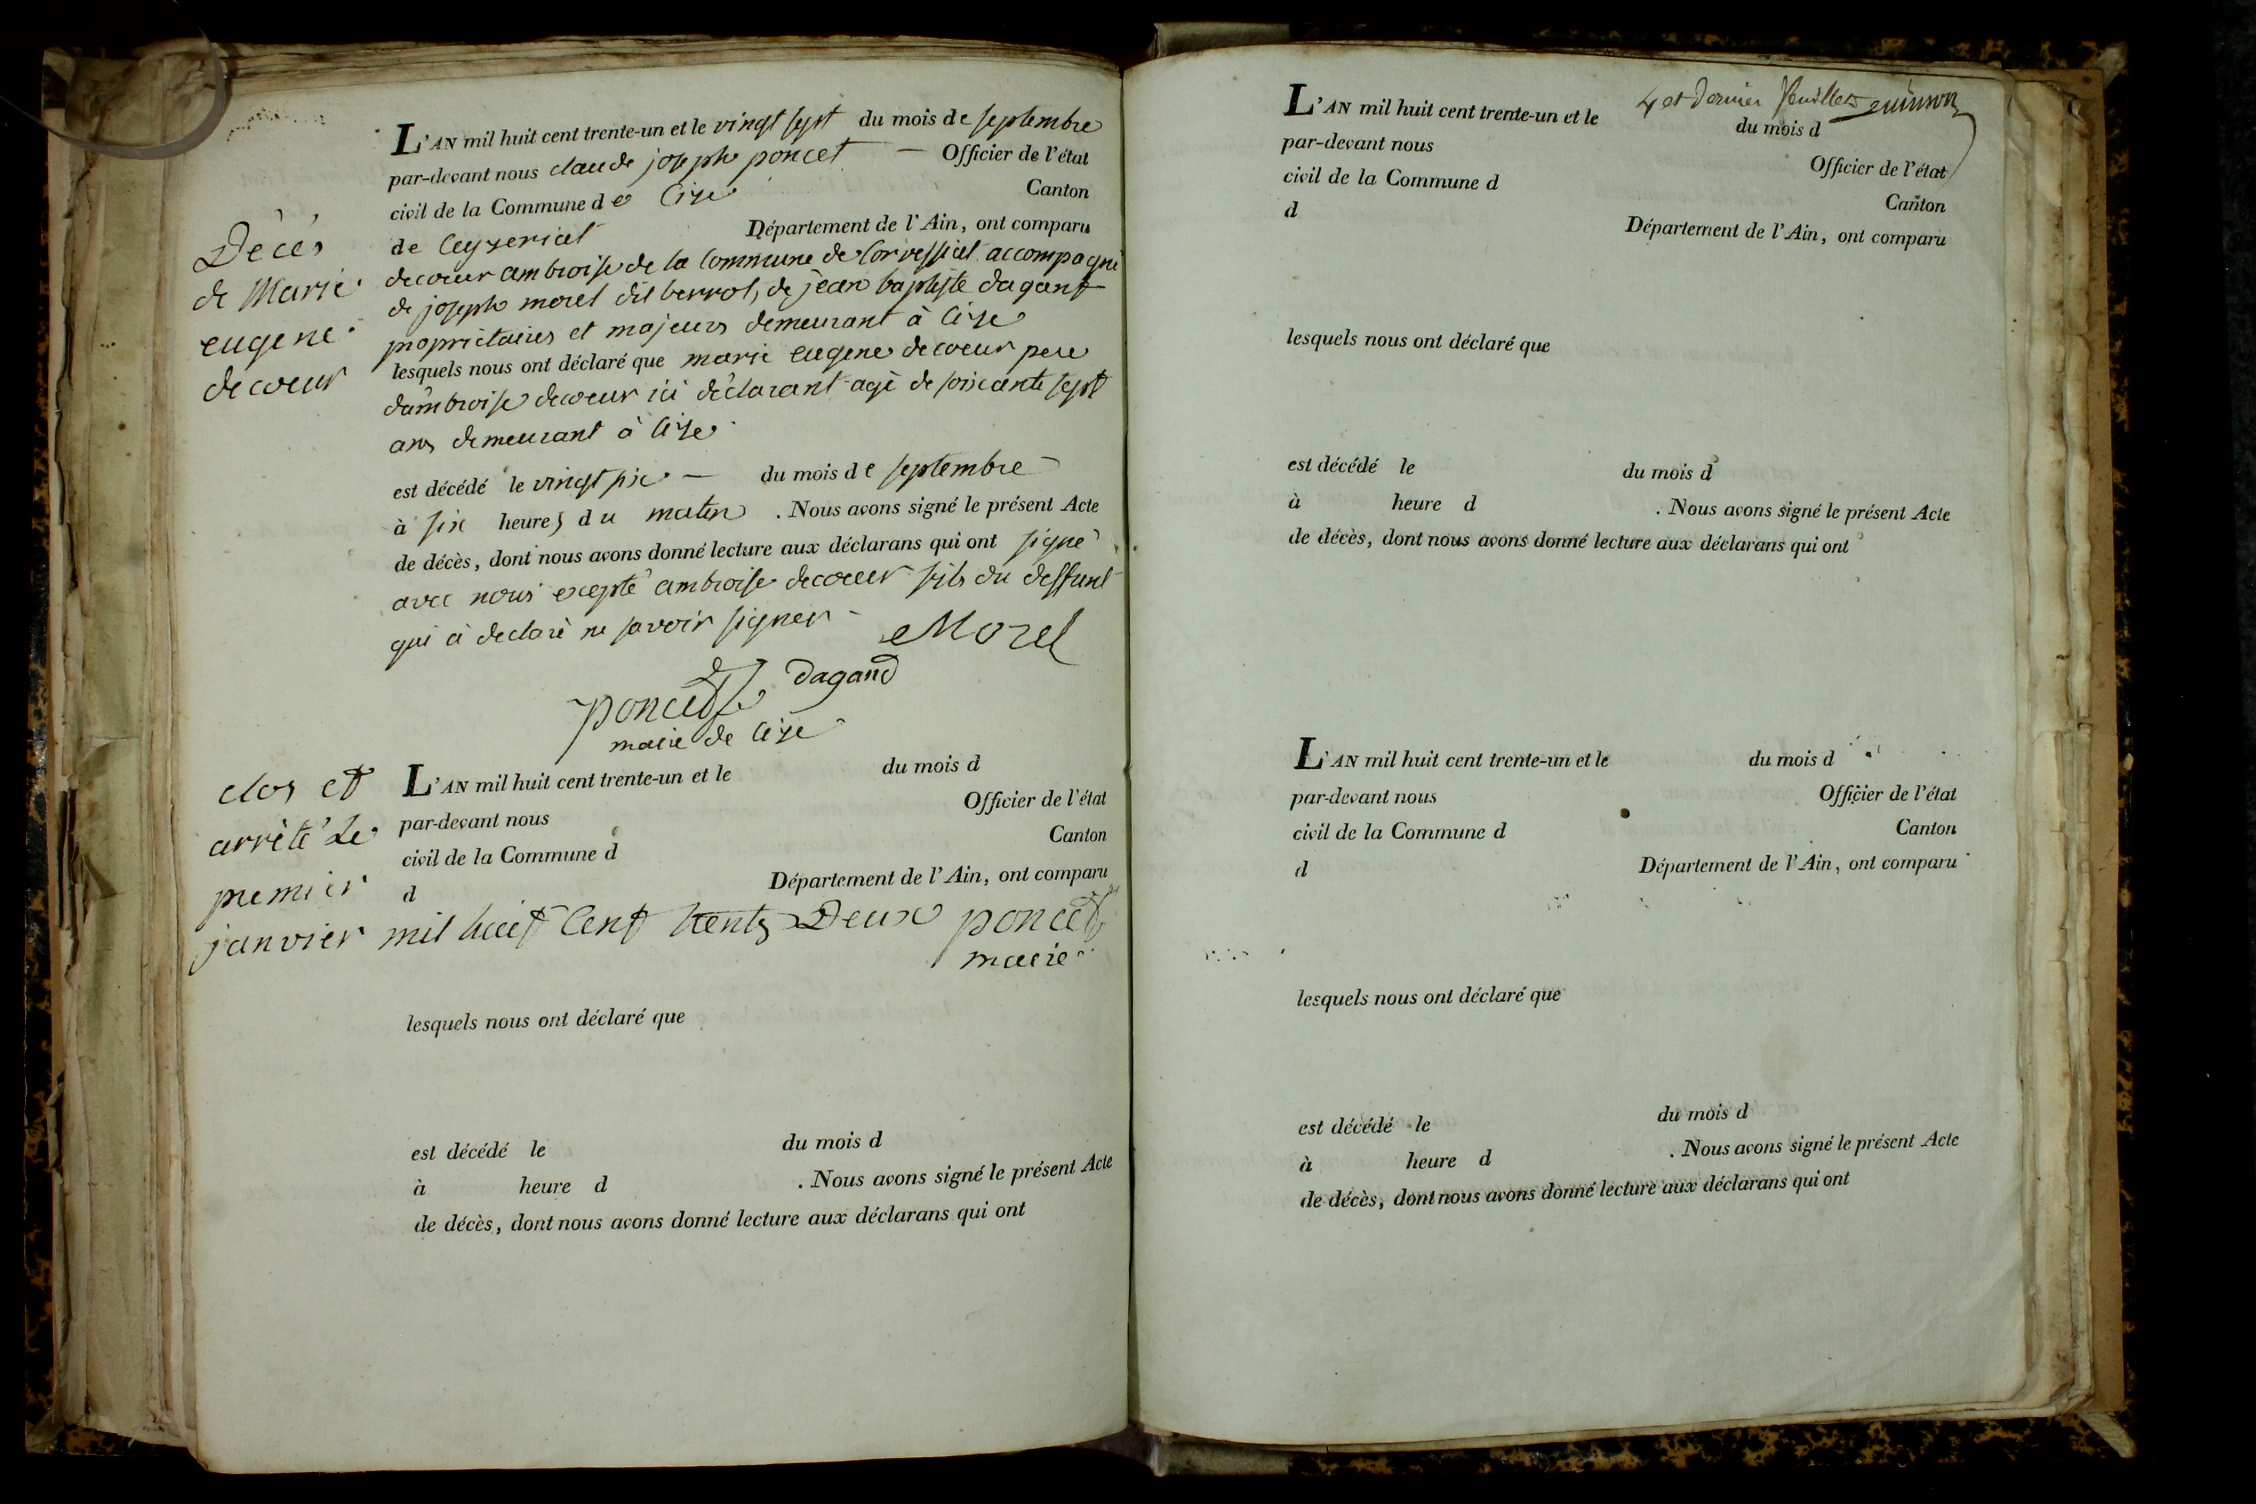 L'AN mil huit cent trente-un et le vingt sept du mois de septembre
par-devant nous claude joseph poncet — Officier de l'état
civil de la Commune de Cize Canton
de Ceyzeriat Département de l'Ain, ont comparu
Décès
de Marie
eugene
decoeur
decoeur ambroise de la Commune de Corvessiat accompagné
de joseph morel dit berrot, de jean baptiste dagant
proprietaires et majeurs demeurant à Cize
lesquels nous ont déclaré que marie eugene decoeur pere
d'ambroise decoeur ici déclarant agé de soixante sept
ans demeurant à Cize
est décédé le vingt six — du mois de septembre
à six heures du matin . Nous avons signé le présent Acte
de décès, dont nous avons donné lecture aux déclarans qui ont signé
avec nous excepté ambroise decoeur fils du deffunt
qui à declaré ne savoir signer
Morel
dagand
poncet
maire de Cize
clos et
arrêté Le
premier
janvier mil huit Cent trente Deux poncet
maire
L'AN mil huit cent trente-un et le du mois d
par-devant nous Officier de l'état
civil de la Commune d Canton
d Département de l'Ain, ont comparu
lesquels nous ont déclaré que
est décédé le du mois d
à heure d . Nous avons signé le présent Acte
de décès, dont nous avons donné lecture aux déclarans qui ont
4 et dernier feuillet
L'AN mil huit cent trente-un et le du mois d
par-devant nous Officier de l'état
civil de la Commune d Canton
d Département de l'Ain, ont comparu
lesquels nous ont déclaré que
est décédé le du mois d
à heure d . Nous avons signé le présent Acte
de décès, dont nous avons donné lecture aux déclarans qui ont
L'AN mil huit cent trente-un et le du mois d
par-devant nous Officier de l'état
civil de la Commune d Canton
d Département de l'Ain, ont comparu
lesquels nous ont déclaré que
est décédé le du mois d
à heure d . Nous avons signé le présent Acte
de décès, dont nous avons donné lecture aux déclarans qui ont